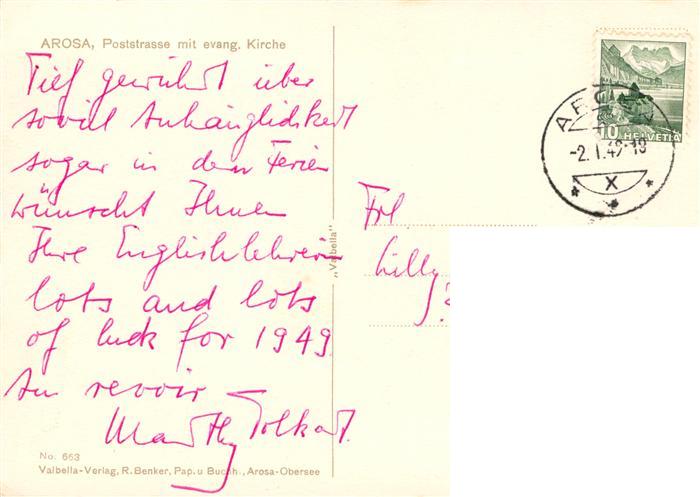 AROSA, Poststrasse mit evang. Kirche
Tief gerührt über
soviel Anhänglichkeit
sogar in den Ferien
wünscht Ihnen
Ihre Englischlehrerin
lots and lots
of luck for 1949.
Au revoir
No. 663
Valbella-Verlag, R. Benker, Pap. u Buchh., Arosa-Obersee
„Valbella"
10 HELVETIA
-2. I. 49-18
X
Frl.
Lilly